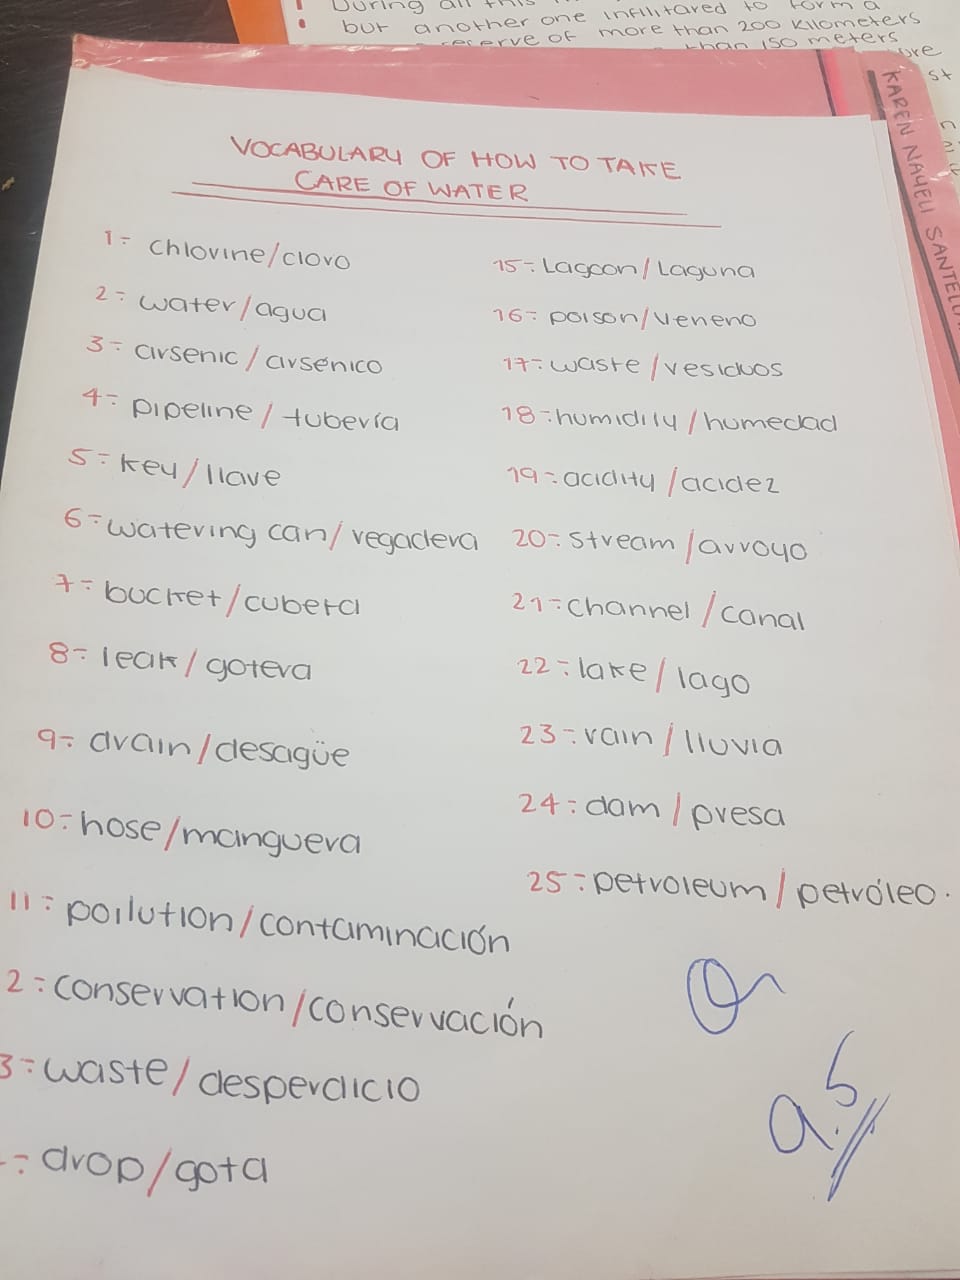 During all this
but another one infilitared to form a
reserve of more than 200 kilometers
than 150 meters
KAREN NAYELI
VOCABULARY OF HOW TO TAKE
CARE OF WATER
1= chlorine/cloro
2= water/agua
3= arsenic/arsénico
4= pipeline/tubería
5= key/llave
6= watering can/regadera
7= bucket/cubeta
8= leak/gotera
9= drain/desagüe
10= hose/manguera
11= pollution/contaminación
2= conservation/conservación
3= waste/desperdicio
= drop/gota
15= Lagoon/Laguna
16= poison/veneno
17= waste/residuos
18= humidily/humedad
19= acidity/acidez
20= stream/arroyo
21= channel/canal
22= lake/lago
23= rain/lluvia
24= dam/presa
25= petroleum/petróleo.